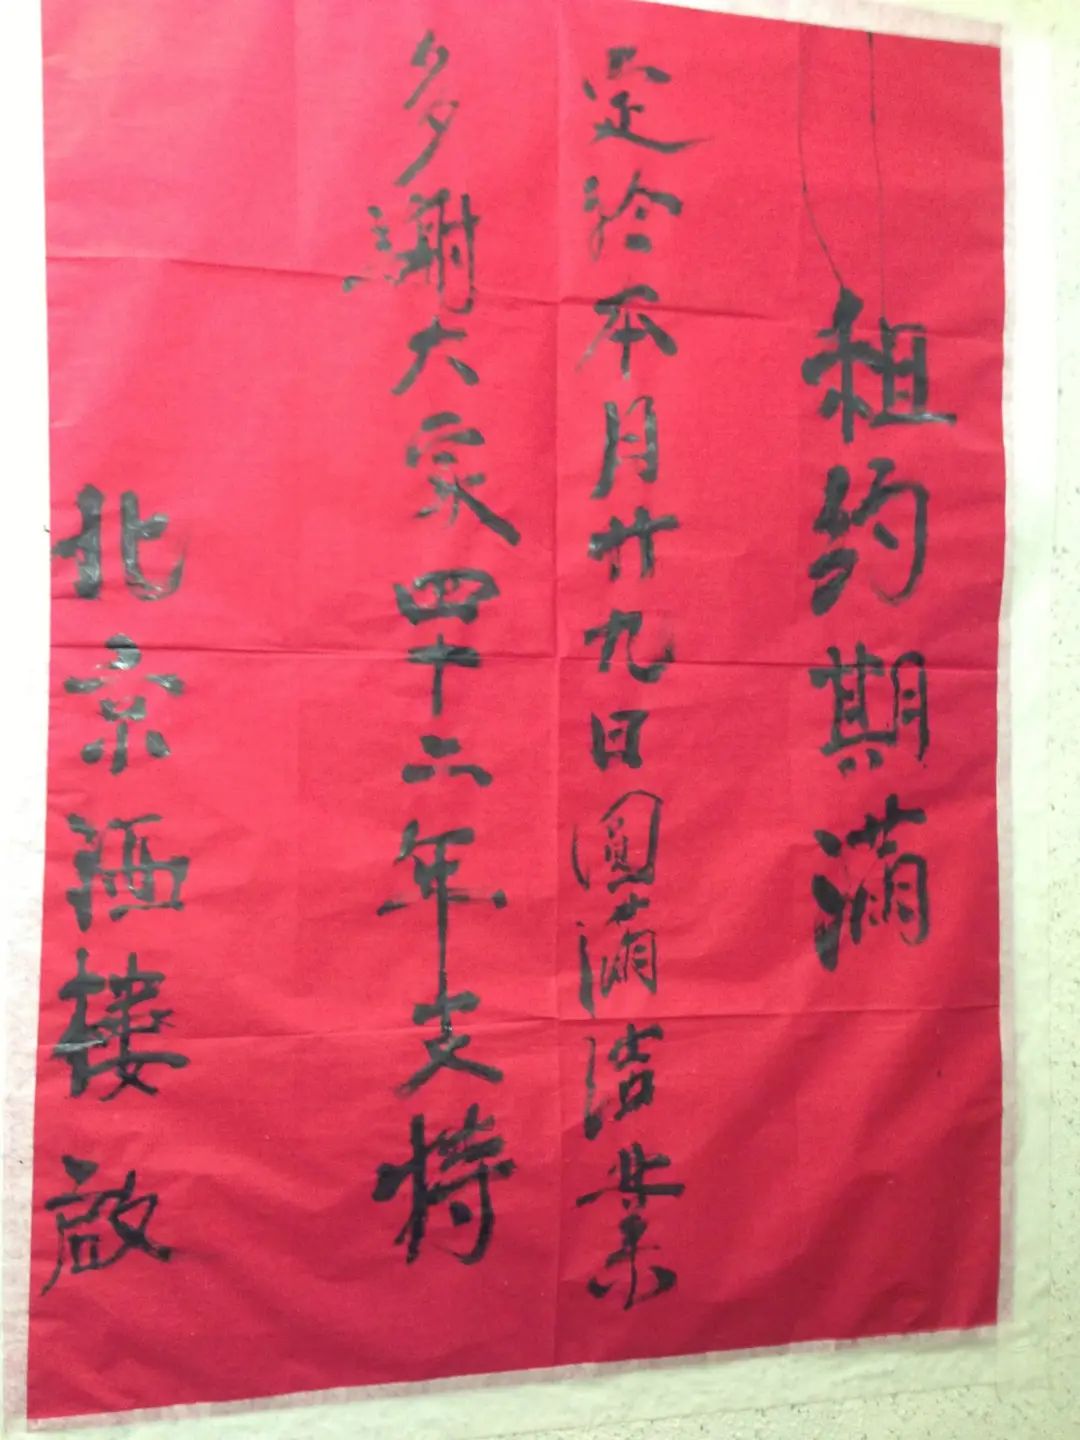 租約期滿
定於本月廿九日圓滿结業
多謝大家四十二年支持
北京酒樓啟